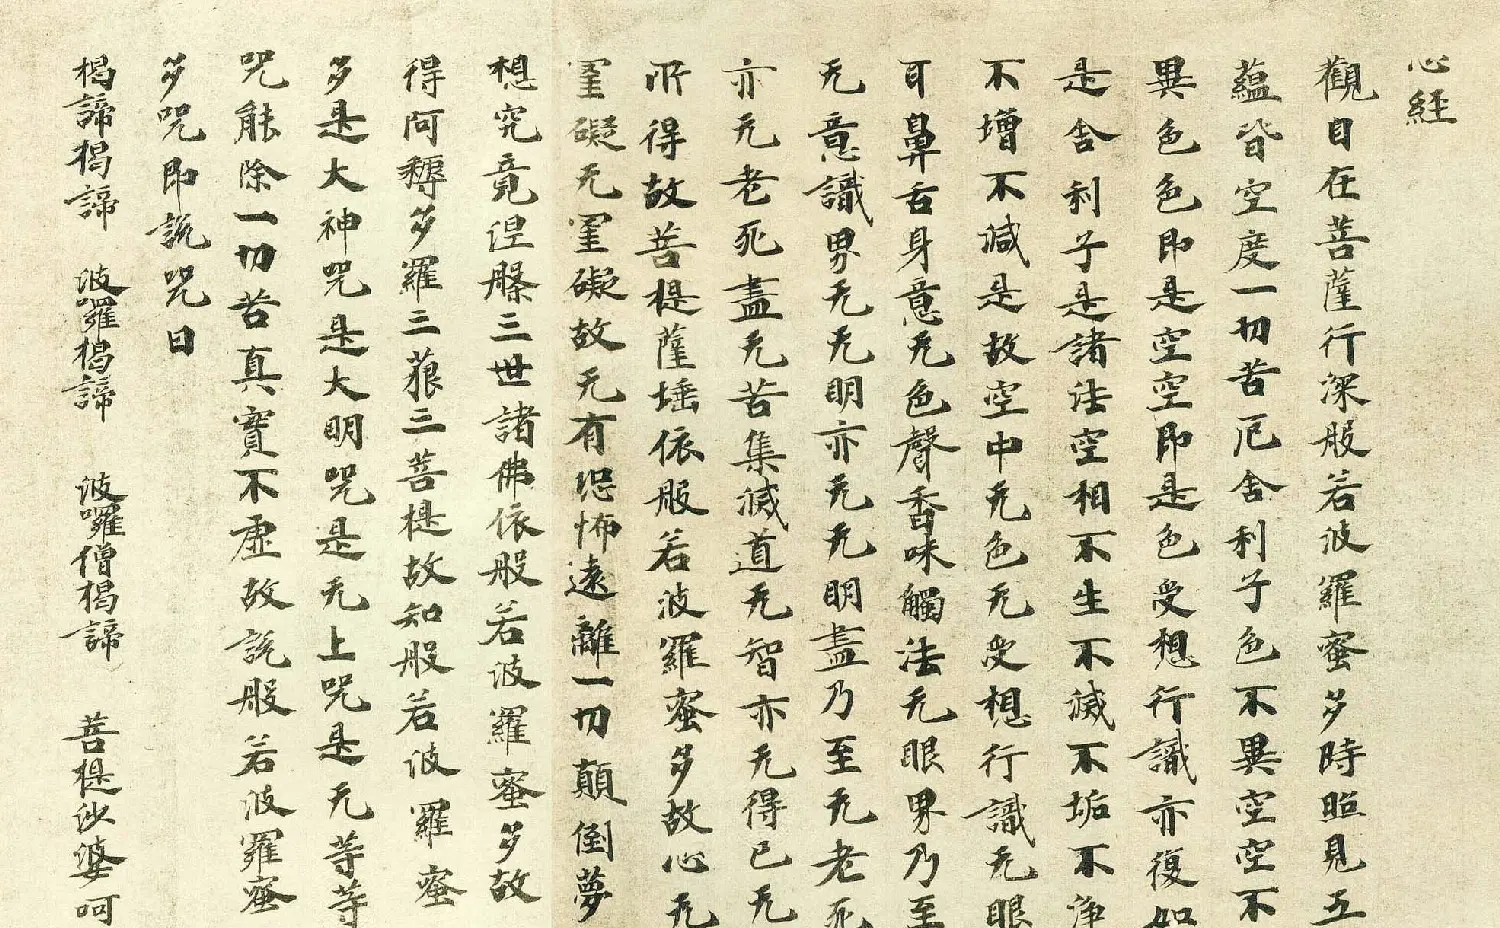 心経
觀自在菩薩行深般若波羅蜜多時照見五
蘊皆空度一切苦厄舍利子色不異空空不
異色色即是空空即是色受想行識亦復如
是舍利子是諸法空相不生不滅不垢不淨
不增不減是故空中无色无受想行識无眼
耳鼻舌身意无色聲香味觸法无眼界乃至
无意識界无无明亦无无明盡乃至无老死
亦无老死盡无苦集滅道无智亦无得已无
所得故菩提薩埵依般若波羅蜜多故心无
罣礙无罣礙故无有恐怖遠離一切顛倒夢
想究竟涅槃三世諸佛依般若波羅蜜多故
得阿耨多羅三藐三菩提故知般若波羅蜜
多是大神咒是大明咒是无上咒是无等等
咒能除一切苦真實不虛故說般若波羅蜜
多咒即說咒曰
揭諦揭諦 波囉揭諦 波囉僧揭諦 菩提沙婆呵